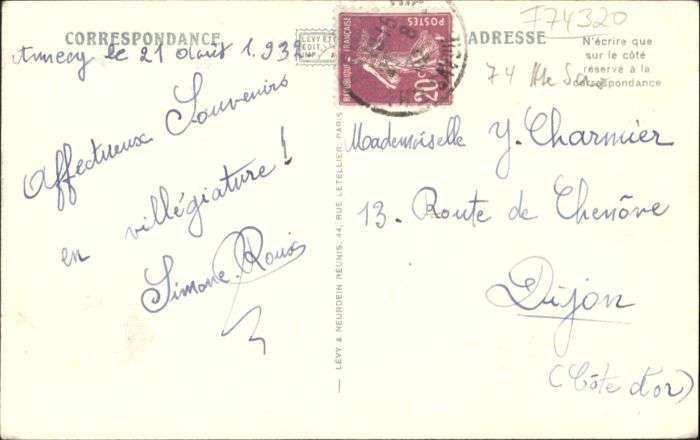 CORRESPONDANCE
Annecy le 21 août 1.937
Affectueux Souvenirs
en villégiature !
Simone Roux
LÉVY &
ÉDIT
POSTES
RÉPUBLIQUE FRANÇAISE
20c
— LÉVY & NEURDEIN RÉUNIS, 44, RUE LETELLIER, PARIS
F74320
ADRESSE
N'écrire que
sur le côté
réservé à la
correspondance
74 Hte
Mademoiselle Y. Charmier
13. Route de Chenôve
Dijon
(Côte d'or)